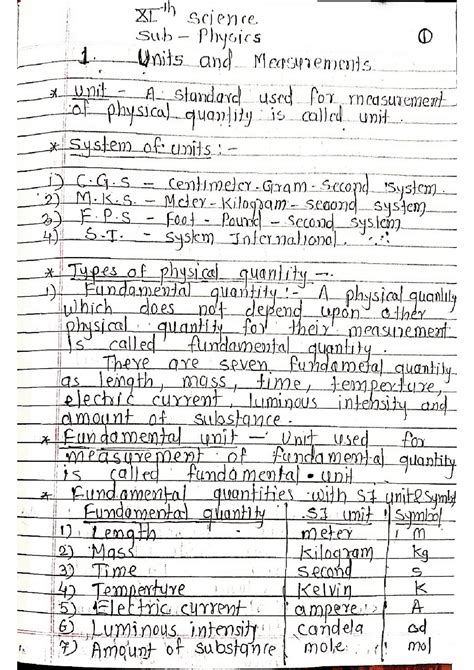 XI th Science
Sub - Physics
①
1. Units and Measurements
* Unit - A standard used for measurement
of physical quantity is called unit.
* System of units :-
1) C.G.S - Centimeter-Gram-Second System.
2) M.K.S - Meter-Kilogram-second system
3) F.P.S - Foot - Pound - second system
4) S.I. - System International.
* Types of physical quantity -
1) Fundamental quantity :- A physical quantity
which does not depend upon other
physical quantity for their measurement
is called fundamental quantity.
There are seven fundametal quantity
as length, mass, time, temperture,
electric current, luminous intensity and
amount of substance.
* Fundamental unit - Unit used for
measurement of fundamental quantity
is called fundamental unit
* Fundamental quantities with SI unit & Symbol
Fundamental quantity | SI unit | Symbol
1) Length | meter | m
2) Mass | Kilogram | kg
3) Time | second | s
4) Temperture | Kelvin | K
5) Electric current | ampere | A
6) Luminous intensity | candela | cd
7) Amount of substance | mole | mol